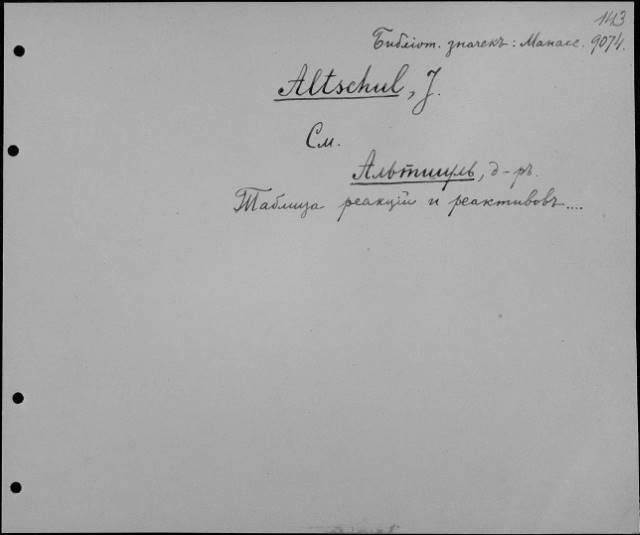 143
Библіот. значекъ: Манасс. 9074.
Altschul, J.
См.
Альтшуль, д-ръ.
Таблица реакцій и реактивовъ....